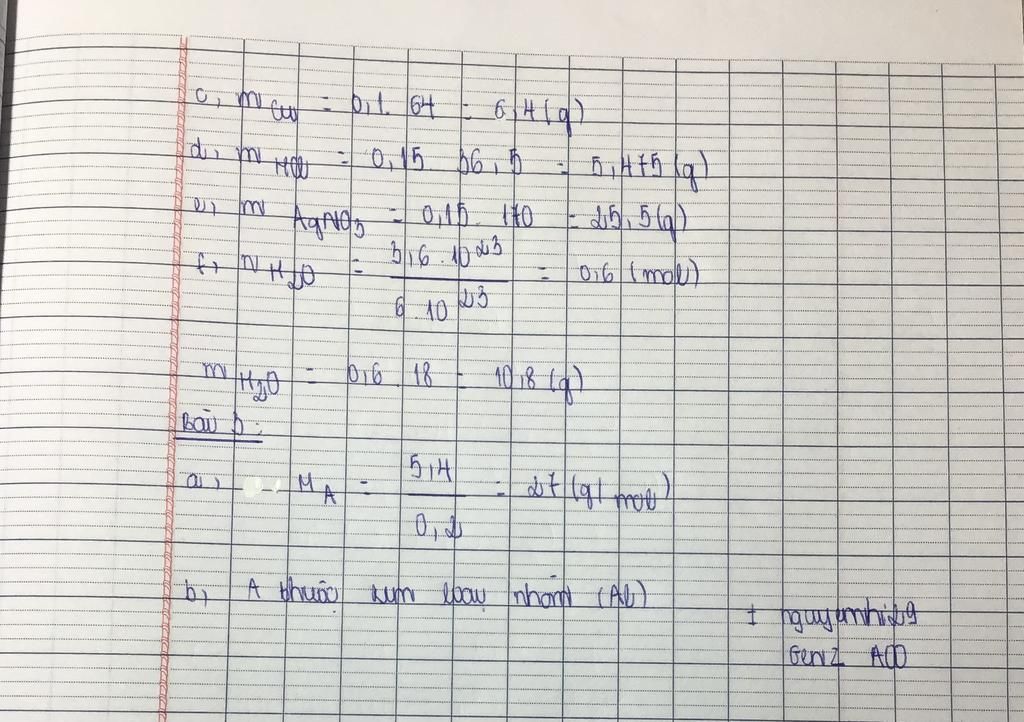 c, m Cu = 0,1. 64 = 6,4 (g)
d, m HCl = 0,15. 36,5 = 5,475 (g)
e, m AgNO3 = 0,15. 170 = 25,5 (g)
f, n H2O = 3,6 . 10^23 / 6 . 10^23 = 0,6 (mol)
m H2O = 0,6 . 18 = 10,8 (g)
Bài 5:
a, M A = 5,4 / 0,2 = 27 (g/mol)
b, A thuộc kim loại nhôm (Al)
nguyenhi29
GenZ ACC